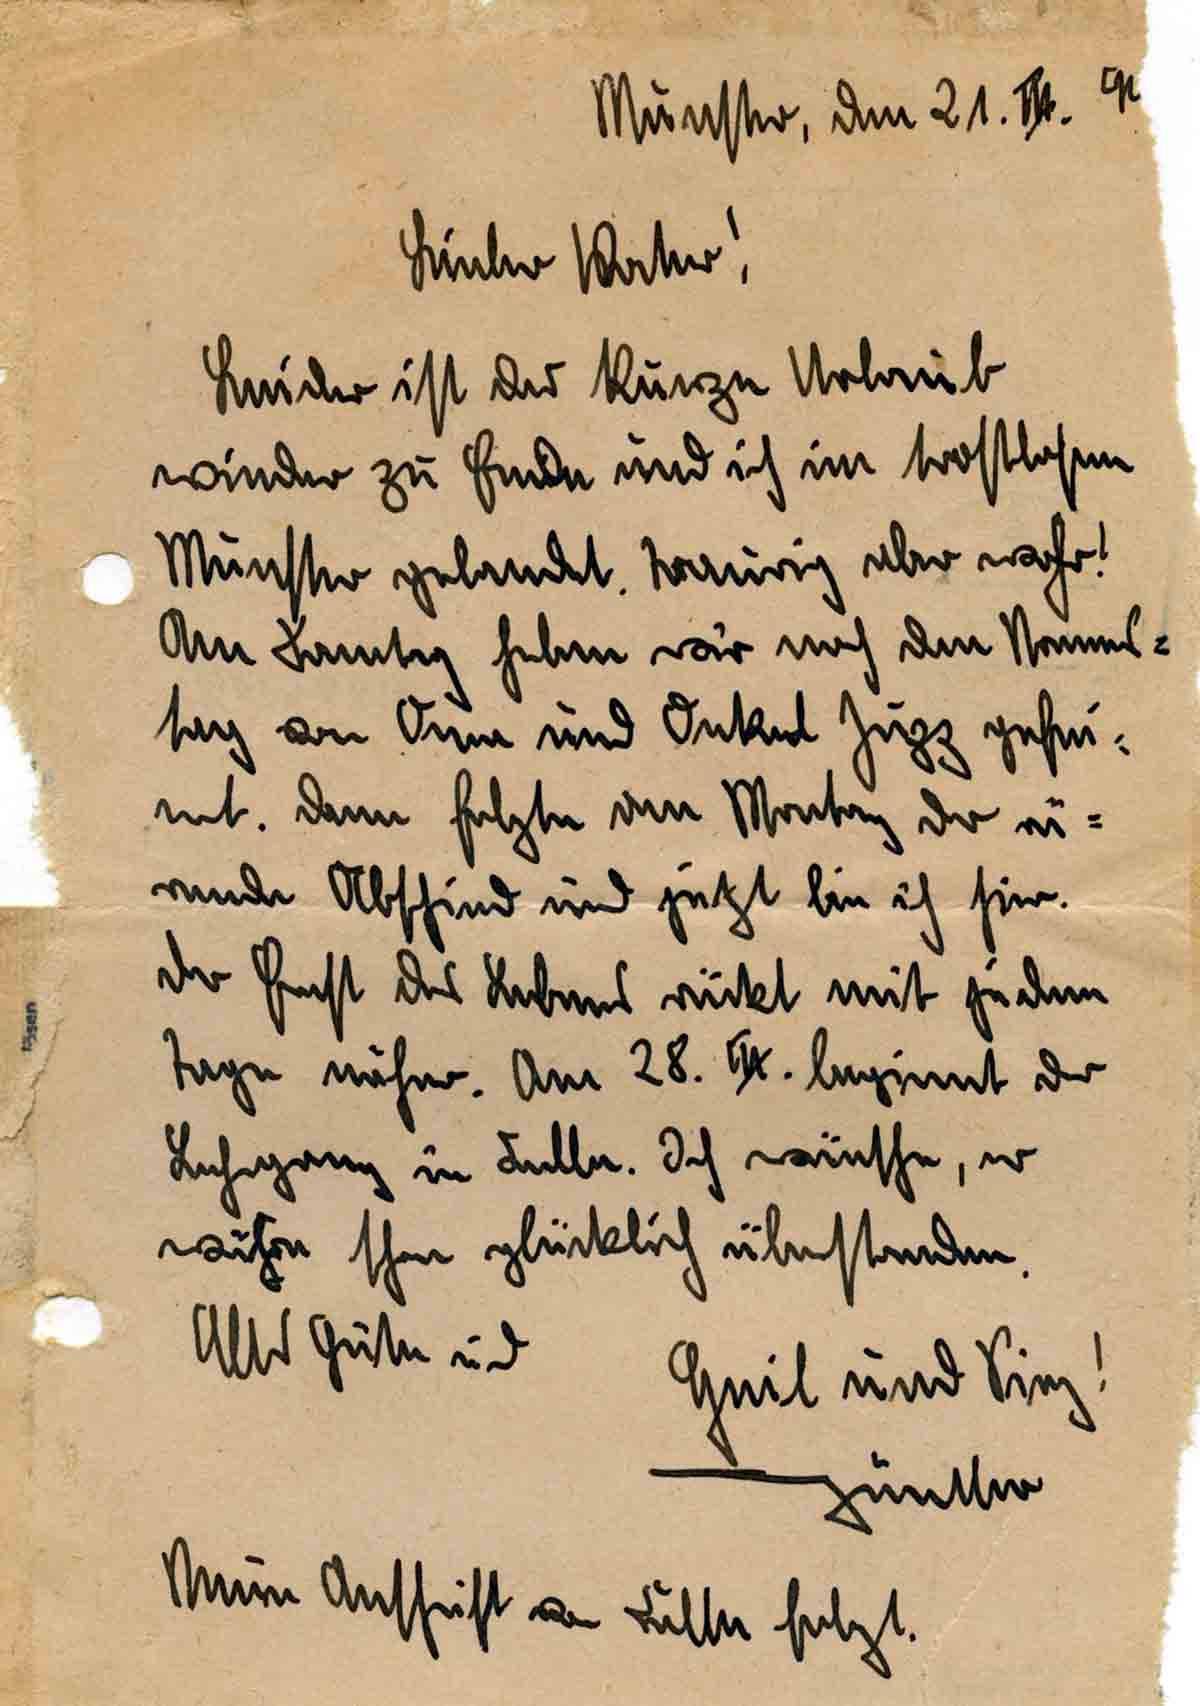 Münster, den 21. III.
Lieber Vater!
Leider ist der kurze Urlaub
wieder zu Ende und ich im trostlosen
Münster gelandet. Traurig aber wahr!
Am Samtag haben wir noch den Namens=
tag von Oma und Onkel gefei=
ert. Dann folgte am Montag der rü=
rende Abschied und jetzt bin ich hier.
Der Ernst des Lebens rückt mit jedem
Tage näher. Am 28. III. beginnt der
Lehrgang in Celle. Ich wünsche, er
währe schon glücklich überstanden.
Alles Gute und
Heil und Sieg!
Günther
Meine Anschrift von Celle folgt.
ssen